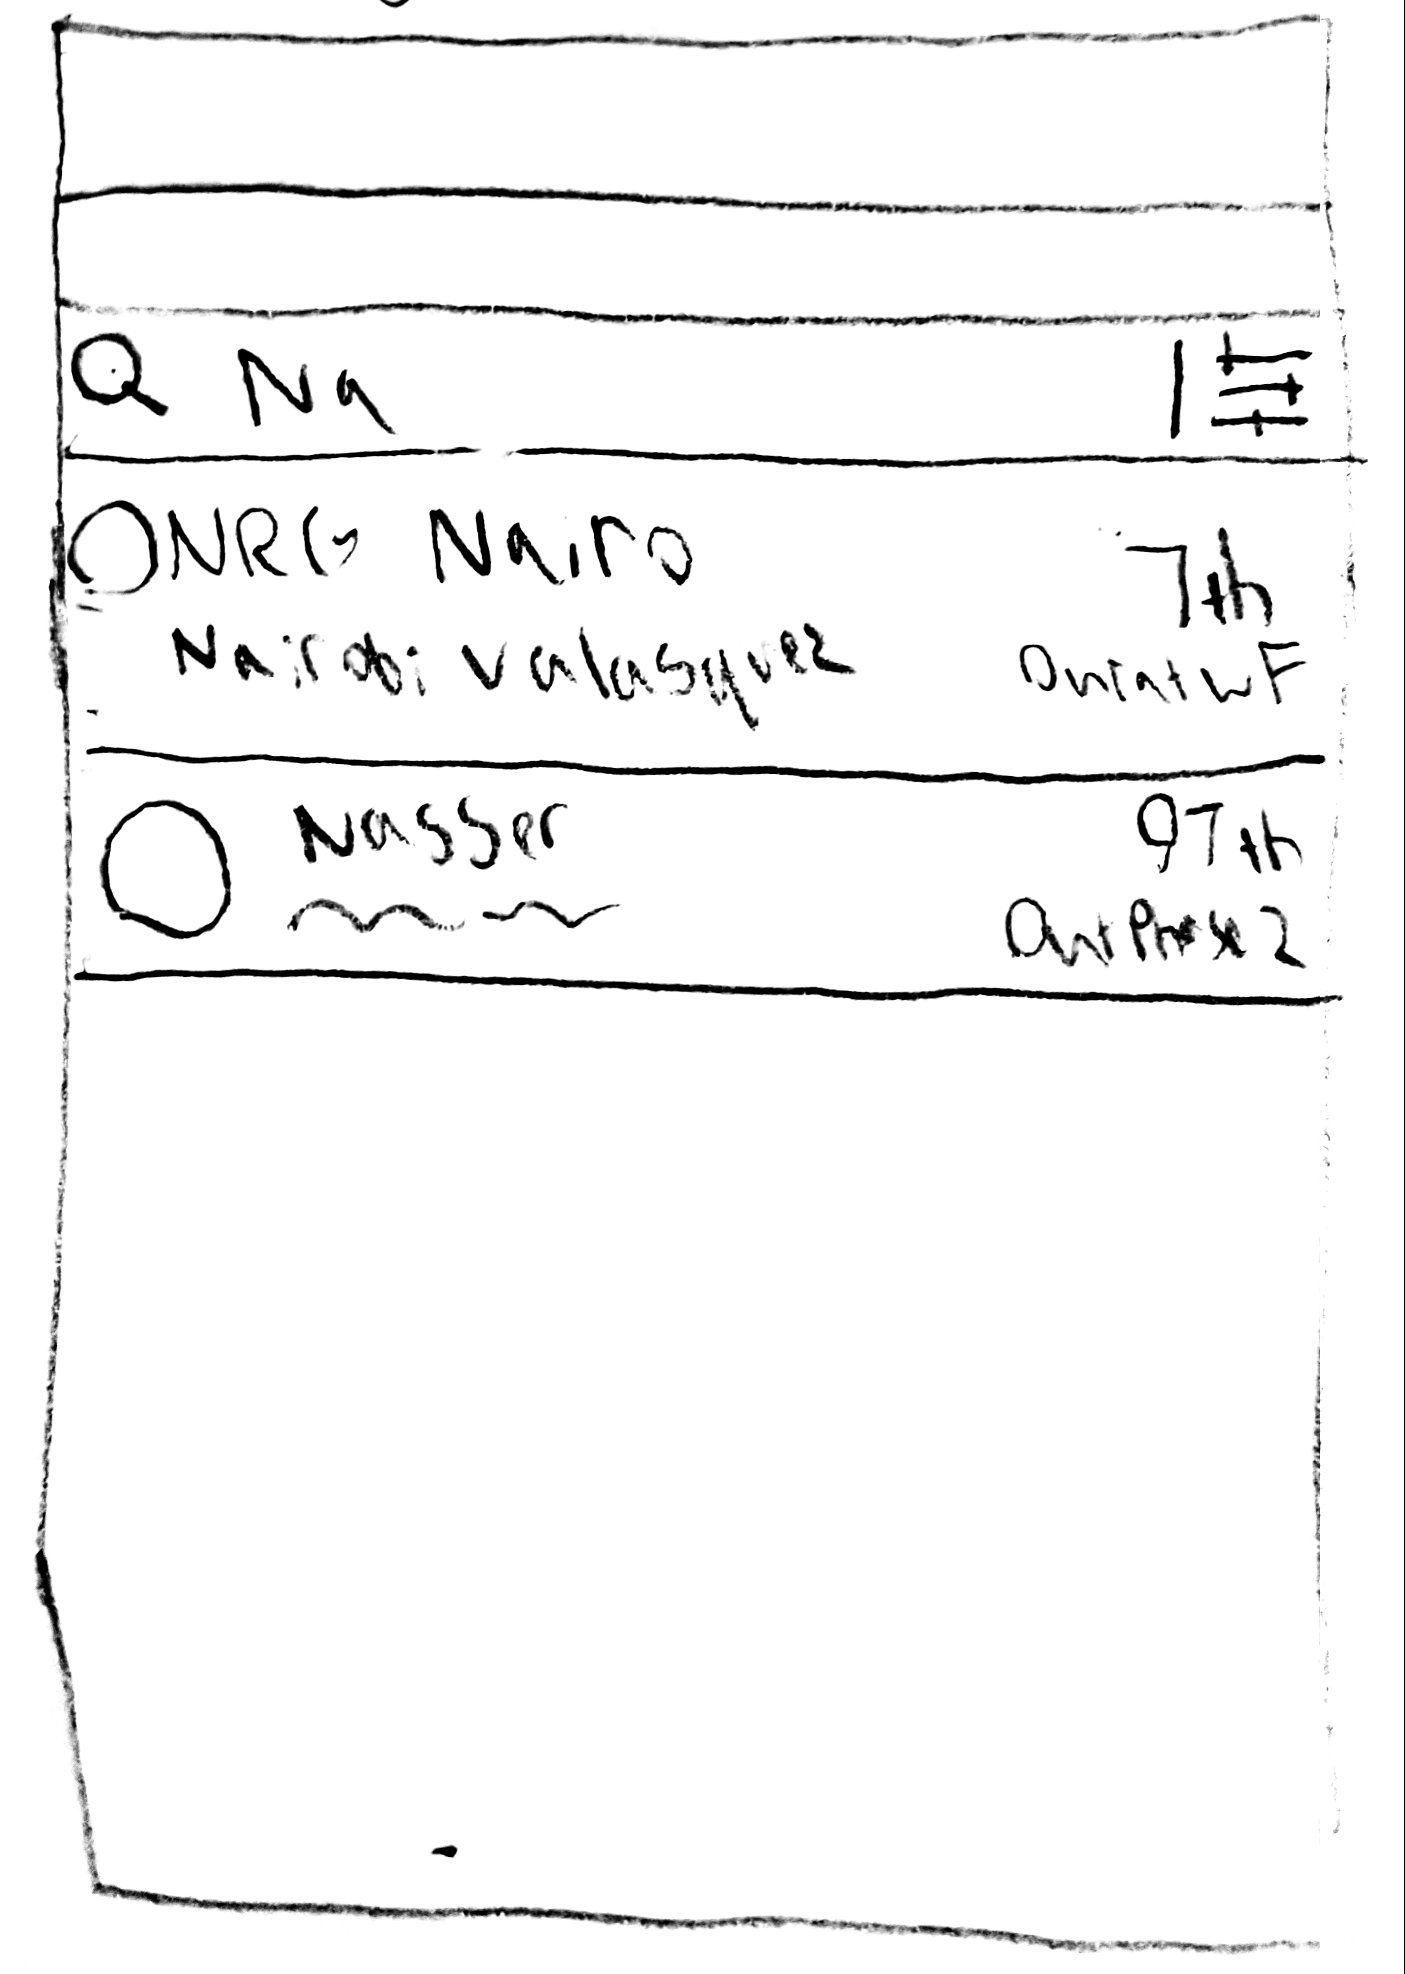 Na
NRG Nairo
7th
Nairobi Valasquez
Out at WF
Nasser
97th
Out Phase 2